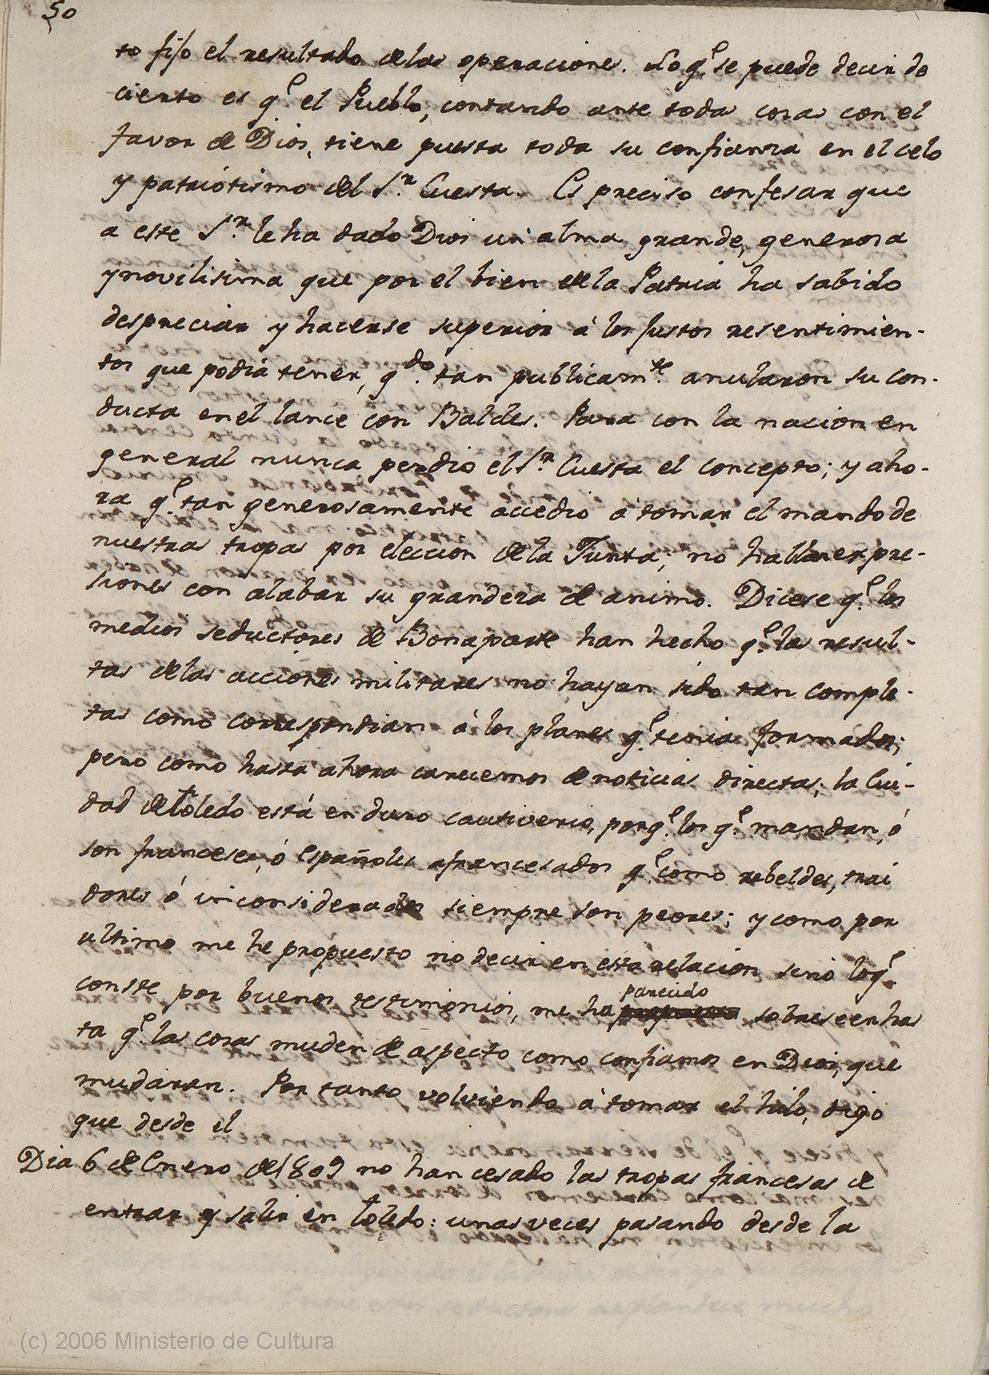 50
to fijo el resultado de las operaciones. Lo q.e se puede decir de
cierto es q.e el Pueblo, contando ante toda cosa con el
favor de Dios, tiene puesta toda su confianza en el celo
y patriotismo del S.r Cuesta. Es preciso confesar que
a este S.r le ha dado Dios un alma grande, generosa
y novilisima que por el bien de la Patria ha sabido
despreciar y hacerse superior á los justos resentimien-
tos que podia tener, q.do tan publicam.te anularon su con-
ducta en el lance con Baldes. Para con la nacion en
general nunca perdio el S.r Cuesta el concepto; y aho-
ra q.e tan generosamente accedio á tomar el mando de
nuestras tropas por eleccion de la Junta, no hallan expre-
siones con alabar su grandeza de animo. Dicese q.e los
medios seductores de Bonaparte han hecho q.e las resul-
tas de las acciones militares no hayan sido tan comple-
tas como correspondian á los planes q.e tenia formados;
pero como hasta ahora carecemos de noticias directas; la Ciu-
dad de Toledo está en duro cautiverio, porq.e los q.e mandan, ó
son franceses, ó españoles afrancesados q.e como rebeldes, trai
dores ó inconsiderados siempre son peores; y como por
ultimo me he propuesto no decir en esta relacion sino loq.e
conste por buenos testimonios, me ha parecido sobreseer has
ta q.e las cosas muden de aspecto como confiamos en Dios, que
mudaran. Por tanto volviendo á tomar el hilo, digo
que desde el
Dia 6 de Enero de 1809 no han cesado las tropas francesas de
entrar y salir en Toledo: unas veces pasando desde la
(c) 2006 Ministerio de Cultura